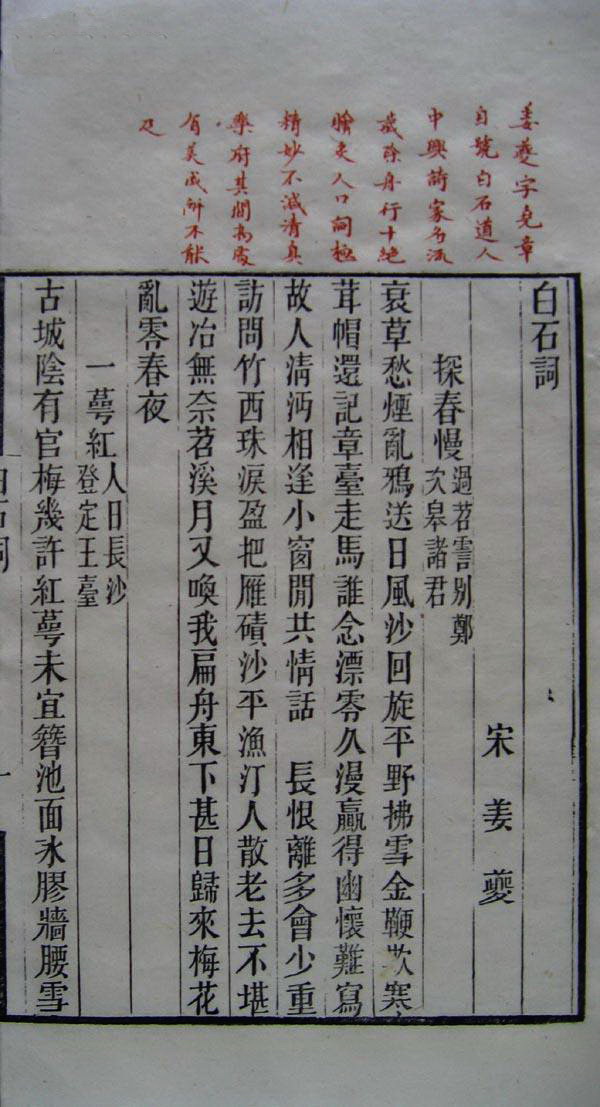 姜夔字堯章
自號白石道人
中興詩家名流
歲除舟行十絕
膾炙人口詞極
精妙不減清真
樂府其間高處
有美成所不能
及
白石詞
宋 姜 夔
探春慢 過苕霅別鄭
次皋諸君
衰草愁煙亂鴉送日風沙回旋平野拂雪金鞭欺寒
茸帽還記章臺走馬誰念漂零久漫贏得幽懷難寫
故人清沔相逢小窗閒共情話 長恨離多會少重
訪問竹西珠淚盈把雁磧沙平漁汀人散老去不堪
遊冶無奈苕溪月又喚我扁舟東下甚日歸來梅花
亂零春夜
一萼紅 人日長沙
登定王臺
古城陰有官梅幾許紅萼未宜簪池面氷膠牆腰雪